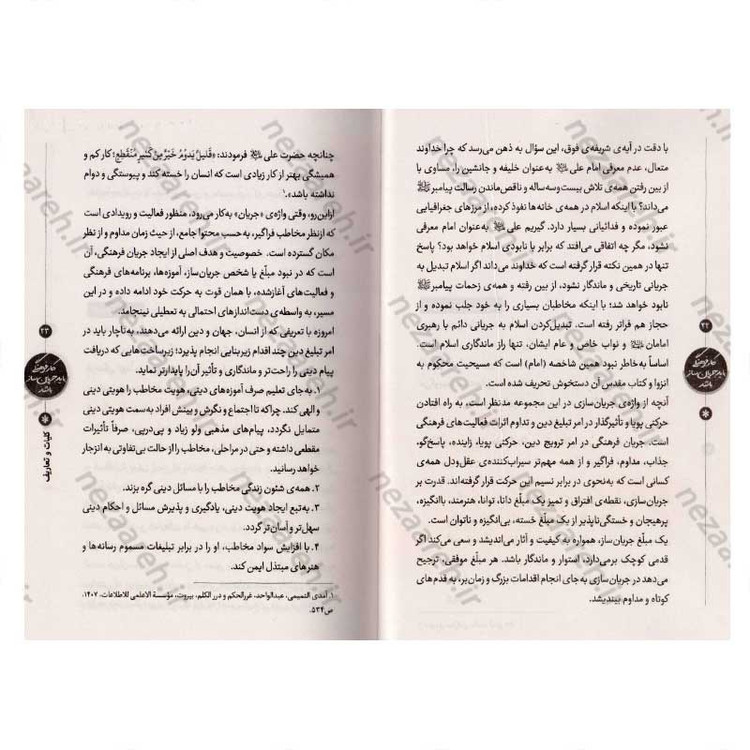 با دقت در آیه‌ی شریفه‌ی فوق، این سؤال به ذهن می‌رسد که چرا خداوند
متعال، عدم معرفی امام علی ﷷ به‌عنوان خلیفه و جانشین را، مساوی با
از بین رفتن همه‌ی تلاش بیست‌وسه‌ساله و ناقص‌ماندن رسالت پیامبر ﷺ
می‌داند؟ با اینکه اسلام در همه‌ی خانه‌ها نفوذ کرده، از مرزهای جغرافیایی
عبور نموده و فدائیانی بسیار دارد. گیریم علی به‌عنوان امام معرفی
نشود، مگر چه اتفاقی می‌افتد که برابر با نابودی اسلام خواهد بود؟ پاسخ
تنها در همین نکته قرار گرفته است که خداوند می‌داند اگر اسلام تبدیل به
جریانی تاریخی و ماندگار نشود، از بین رفته و همه‌ی زحمات پیامبر ﷺ
نابود خواهد شد؛ با اینکه مخاطبان بسیاری را به خود جلب نموده و از
حجاز هم فراتر رفته است. تبدیل‌کردن اسلام به جریانی دائم با رهبری
امامان و نواب خاص و عام ایشان، تنها راز ماندگاری اسلام است.
اساساً به‌خاطر نبود همین شاخصه (امام) است که مسیحیت محکوم به
انزوا و کتاب مقدس آن دستخوش تحریف شده است.
آنچه از واژه‌ی جریان‌سازی در این مجموعه مدنظر است، به راه افتادن
حرکتی پویا و تأثیرگذار در امر تبلیغ دین و تداوم اثرات فعالیت‌های فرهنگی
است. جریان فرهنگی در امر ترویج دین، حرکتی پویا، زاینده، پاسخ‌گو،
جذاب، مداوم، فراگیر و از همه مهم‌تر سیراب‌کننده‌ی عقل‌ودل همه‌ی
کسانی است که به‌نحوی در برابر نسیم این حرکت قرار گرفته‌اند. قدرت بر
جریان‌سازی، نقطه‌ی افتراق و تمیز یک مبلّغ دانا، توانا، هنرمند، باانگیزه،
پرهیجان و خستگی‌ناپذیر از یک مبلّغ خسته، بی‌انگیزه و ناتوان است.
یک مبلّغ جریان‌ساز، همواره به کیفیت و آثار می‌اندیشد و سعی می‌کند اگر
قدمی کوچک برمی‌دارد، استوار و ماندگار باشد. هر مبلّغ موفقی، ترجیح
می‌دهد در جریان‌سازی به‌جای انجام اقدامات بزرگ و زمان‌بر، به قدم‌های
کوتاه و مداوم بیندیشد.
۲۲
کار فرهنگی
باید جریان‌ساز
باشد
چنانچه حضرت علی فرمودند: «قَلیلٌ یَدومُ خَیْرٌ مِنْ کَثیرٍ مُنْقَطِعٍ؛ کار کم و
همیشگی بهتر از کار زیادی است که انسان را خسته کند و پیوستگی و دوام
نداشته باشد».۱
ازاین‌رو، وقتی واژه‌ی «جریان» به‌کار می‌رود، منظور فعالیت و رویدادی است
که ازنظر مخاطب فراگیر، به حسب محتوا جامع، از حیث زمان مداوم و از نظر
مکان گسترده است. خصوصیت و هدف اصلی از ایجاد جریان فرهنگی، آن
است که در نبود مبلّغ یا شخص جریان‌ساز، آموزه‌ها، برنامه‌های فرهنگی
و فعالیت‌های آغازشده، با همان قوت به حرکت خود ادامه داده و در این
مسیر، به واسطه‌ی دست‌اندازهای احتمالی به تعطیلی نینجامد.
امروزه با تعریفی که از انسان، جهان و دین ارائه می‌دهند، به‌ناچار باید در
امر تبلیغ دین چند اقدام زیربنایی انجام پذیرد؛ زیرساخت‌هایی که دریافت
پیام دینی را راحت‌تر و ماندگاری و تأثیر آن را پایدارتر نماید.
۱. به‌جای تعلیم صرف آموزه‌های دینی، هویت مخاطب را هویتی دینی
و الهی کند. چراکه تا اجتماع و نگرش و بینش افراد به‌سمت هویتی دینی
متمایل نگردد، پیام‌های مذهبی ولو زیاد و پی‌درپی، صرفاً تأثیرات
مقطعی داشته و حتی در مراحلی، مخاطب را از حالت بی‌تفاوتی به انزجار
خواهد رسانید.
۲. همه‌ی شئون زندگی مخاطب را با مسائل دینی گره بزند.
۳. به‌تبع ایجاد هویت دینی، یادگیری و پذیرش مسائل و احکام دینی
سهل‌تر و آسان‌تر گردد.
۴. با افزایش سواد مخاطب، او را در برابر تبلیغات مسموم رسانه‌ها و
هنرهای مبتذل ایمن کند.
۱. آمدی التمیمی، عبدالواحد، غررالحکم و دررالکلم، بیروت، مؤسسة الاعلمی للاطلاعات، ۱۴۰۷،
ص۵۳۴.
۲۳
کار فرهنگی
باید جریان‌ساز
باشد
کلیات و تعاریف
nezaareh.ir